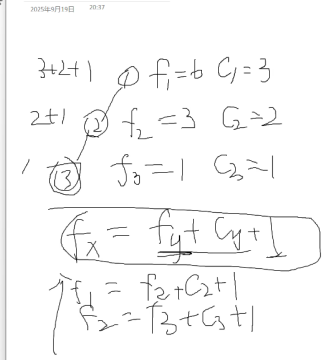 2025年9月19日 20:37
3+2+1 ① f₁=6 C₁=3
2+1 ② f₂=3 C₂=2
1 ③ f₃=1 C₃=1
fx = fy + Cy + 1
f₁ = f₂+C₂+1
f₂ = f₃+C₃+1